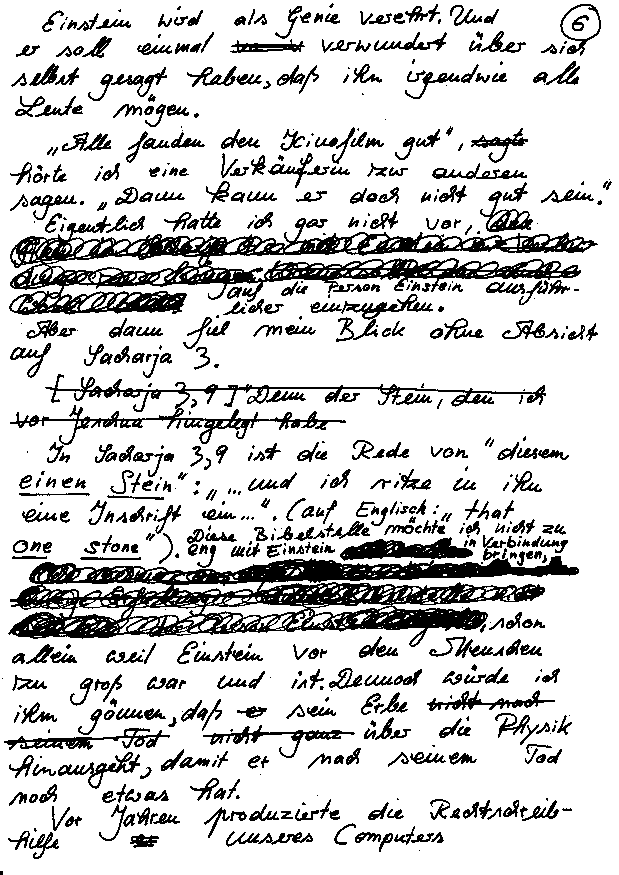 6
Einstein wird als Genie verehrt. Und
er soll einmal verwundert über sich
selbst gesagt haben, daß ihn irgendwie alle
Leute mögen.
„Alle fanden den Kinofilm gut“, sagte
hörte ich eine Verkäuferin zur anderen
sagen. „Dann kann er doch nicht gut sein.“
Eigentlich hatte ich gar nicht vor,
auf die Person Einstein ausführ-
licher einzugehen.
Aber dann fiel mein Blick ohne Absicht
auf Sacharja 3.
[Sacharja 3,9] "Denn der Stein, den ich
vor Jeschua hingelegt habe
In Sacharja 3,9 ist die Rede von "diesem
einen Stein": „... und ich ritze in ihn
eine Inschrift ein...“. (auf Englisch: „that
one stone“). Diese Bibelstelle möchte ich nicht zu
eng mit Einstein in Verbindung
bringen,
schon
allein weil Einstein vor den Menschen
zu groß war und ist. Dennoch würde ich
ihm gönnen, daß er sein Erbe nicht nach
seinem Tod nicht ganz über die Physik
hinausgeht, damit er nach seinem Tod
noch etwas hat.
Vor Jahren produzierte die Rechtschreib-
hilfe unseres Computers